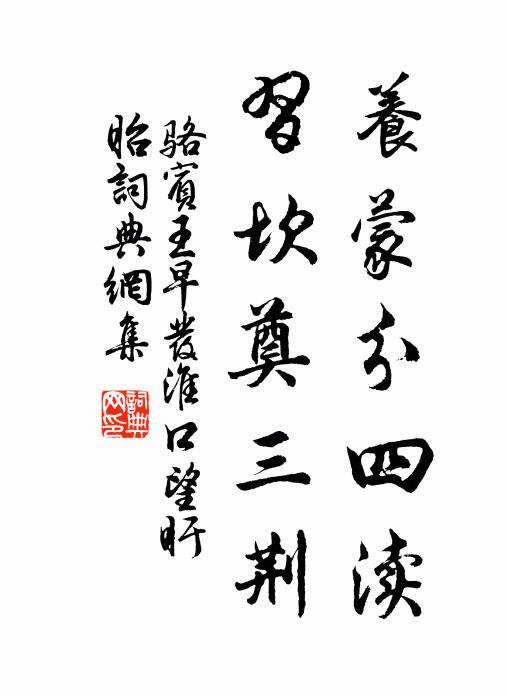 養蒙分四渎
習坎奠三荆
骆賓王早發淮口望盱
眙詞典網集
詞典
网印